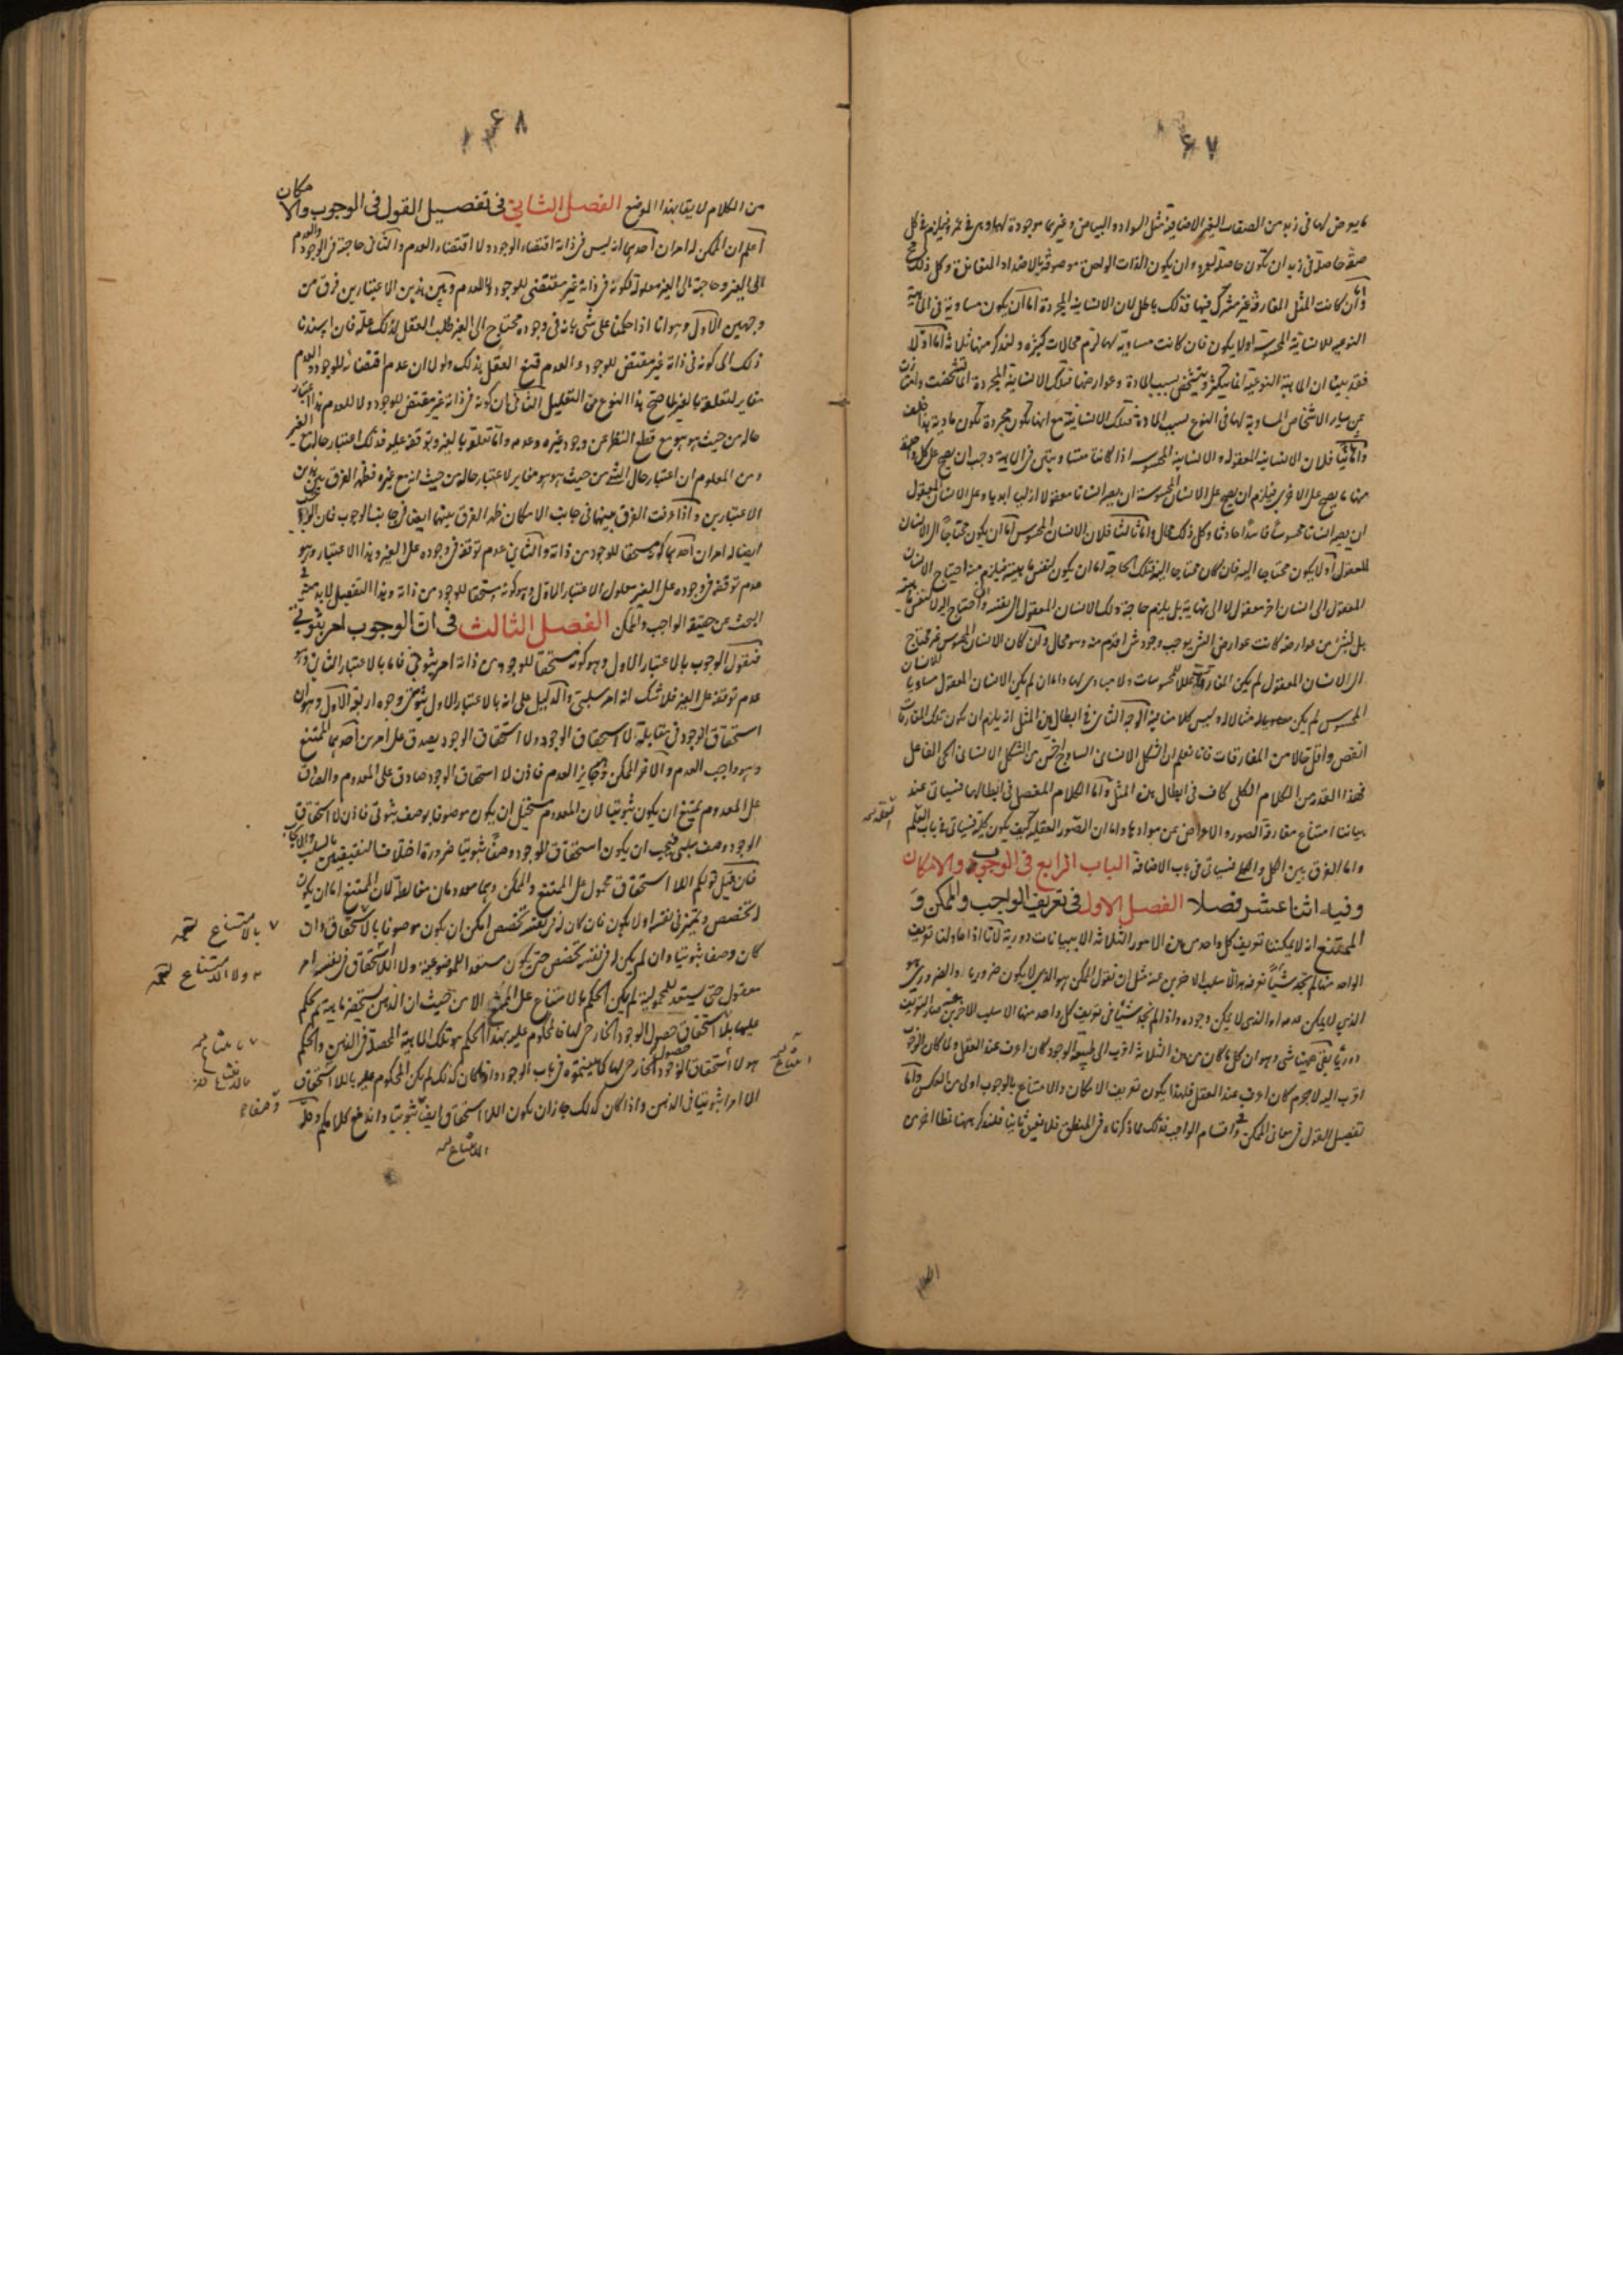 ٦٧
ما يعرض لها فى زيد من الصفات الغير الاضافية مثل السواد والبياض وغيرهما موجودة لها وهى فى عمرو فيلزم فى كل
صفة حاصلة فى زيد ان تكون حاصلة لعمرو وان يكون الذات الواحدة موصوفة بالاضداد المتقابلة وكل ذلك مح
واما ان كانت المثل المفارقة غير مشترك فيها فذلك باطل لان الانسانية المجردة اما ان يكون مساوية فى الماهية
النوعية للانسانية المحسوسة اولا يكون فان كانت مساوية لها لزم محالات كثيرة ولنذكر منها ثلاثة اما اولا
فقد بينا ان الماهية النوعية انما يتكثر ويتشخص بسبب المادة وعوارضها فتلك الانسانية المجردة انما تشخصت وامتازت
عن ساير الاشخاص المساوية لها فى النوع بسبب المادة فتلك الانسانية مع انها تكون مجردة تكون مادية هذا خلف
واما ثانيا فلان الانسانية المعقولة والانسانية المحسوسة اذا كانتا متساويتين فى الماهية وجب ان يصح على كل واحدة
منهما ما يصح على الاخرى فيلزم ان يصح على الانسان المحسوس ان يصير انسانا معقولا ازليا ابديا وعلى الانسان المعقول
ان يصير انسانا محسوسا فاسدا حادثا وكل ذلك محال واما ثالثا فلان الانسان المحسوس اما ان يكون محتاجا الى الانسان
المعقول او لا يكون محتاجا اليه فان كان محتاجا اليه فتلك الحاجة اما ان يكون لنفس ماهيته فيلزم منه احتياج الانسان
المعقول الى انسان اخر معقول لا الى نهاية بل يلزم حاجة ذلك الانسان المعقول الى نفسه وان احتاج اليه لا لنفس ماهيته
بل لشئ من عوارضه كانت عوارض الشئ يوجب وجود شئ اقدم منه وهو محال وان كان الانسان المحسوس غير محتاج
الى الانسان المعقول لم يكن المفارقات عللا للمحسوسات ولا مبادى لها واما ان لم يكن الانسان المعقول مساويا للانسان
المحسوس لم يكن مثالا له وليس كلامنا فيه الوجه الثانى فى ابطال هذه المثل انه يلزم ان يكون تلك المفارقات
انقص واقل حالا من المقارنات فانا نعلم ان الشكل الانسانى الساذج اخس من الشكل الانسانى الحى الفاعل
فهذا القدر من الكلام الكلى كاف فى ابطال هذه المثل واما الكلام المفصل فى ابطالها فسياتى عند
بياننا امتناع مفارقة الصور والاعراض عن موادها واما ان الصور العقلية كيف يكون كلية فسياتى فى باب العلم
واما الفرق بين الكل والكلى فسياتى فى باب الاضافة الباب الرابع فى الوجوب والامكان
وفيه اثنا عشر فصلا الفصل الاول فى تعريف الواجب والممكن و
الممتنع انه لا يمكننا تعريف كل واحد من هذه الامور الثلاثة الا ببيانات دورية لانا اذا حاولنا تعريف
الواحد منها لم نجد شيئا نعرفه به الا سلب الاخرين عنه مثل ان نقول الممكن هو الذى لا يكون ضروريا والضرورى هو
الذى لا يمكن عدمه او الذى لا يمكن وجوده واذا لم نجد شيئا فى تعريف كل واحد منها الا سلب الاخرين عنه صار التعريف
دوريا بقى ههنا شئ وهو ان كل ما كان من هذه الثلاثة اقرب الى طبيعة الوجود كان اعرف عند العقل ولما كان الوجوب
اقرب اليه لا جرم كان اعرف عند العقل فلهذا يكون تعريف الامكان والامتناع بالوجوب اولى من العكس واما
تفصيل القول فى معانى الممكن وفى اقسام الواجب فذلك مما ذكرناه فى المنطق فلا نعيده ثانيا فلنذكر ههنا نمطا اخرى
٦٨
من الكلام لايقا بهذا الموضع الفصل الثانى فى تفصيل القول فى الوجوب والامكان
اعلم ان الممكن له امران احدهما انه ليس فى ذاته اقتضاء الوجود ولا اقتضاء العدم والثانى حاجته فى الوجود والعدم
الى الغير وحاجته الى الغير معلولة لكونه فى ذاته غير مقتضى للوجود ولا للعدم وبين هذين الاعتبارين فرق من
وجهين الاول وهو انا اذا حكمنا على شئ بانه فى وجوده محتاج الى الغير طلب العقل لذلك علة فان اسندنا
ذلك الى كونه فى ذاته غير مقتض للوجود والعدم قنع العقل بذلك ولولا ان عدم اقتضائه للوجود والعدم
مغاير لتعلقه بالغير لما صح هذا النوع من التعليل الثانى ان كونه فى ذاته غير مقتض للوجود ولا للعدم هذا اعتبار
حاله من حيث هو هو مع قطع النظر عن وجود غيره وعدمه واما تعلقه بالغير وتوقفه عليه فذلك اعتبار حاله مع الغير
ومن المعلوم ان اعتبار حال الشئ من حيث هو هو مغاير لاعتبار حاله من حيث انه مع غيره فظهر الفرق بين هذين
الاعتبارين واذا عرفت الفرق بينهما فى جانب الامكان ظهر الفرق بينهما ايضا فى جانب الوجوب فان الواجب
ايضا له امران احدهما كونه مستحقا للوجود من ذاته والثانى عدم توقفه فى وجوده على الغير وهذا الاعتبار وهو
عدم توقفه فى وجوده على الغير معلول الاعتبار الاول وهو كونه مستحقا للوجود من ذاته وهذا التفصيل لابد منه فى
البحث عن حقيقة الواجب والممكن الفصل الثالث فى ان الوجوب امر ثبوتى
فنقول الوجوب بالاعتبار الاول وهو كونه مستحقا للوجود من ذاته امر ثبوتى فاما بالاعتبار الثانى وهو
عدم توقفه على الغير فلا شك انه امر سلبى والدليل على انه بالاعتبار الاول ثبوتى وجوه اربعة الاول وهو ان
استحقاق الوجود فى مقابلة لا استحقاق الوجود ولا استحقاق الوجود يصدق على امرين احدهما الممتنع
وهو واجب العدم والاخر الممكن وهو جايز العدم فاذن لا استحقاق الوجود صادق على المعدوم والصادق
على المعدوم يمتنع ان يكون ثبوتيا لان المعدوم يستحيل ان يكون موصوفا بوصف ثبوتى فاذن لا استحقاق
الوجود وصف سلبى فيجب ان يكون استحقاق الوجود وصفا ثبوتيا ضرورة اختلاف النقيضين بالسلب والايجاب
فان قيل قولكم اللا استحقاق محمول على الممتنع والممكن وهما معدومان مغالطة لان الممتنع اما ان يكون
له تخصص وتميز فى نفسه اولا يكون فان كان له فى نفسه تخصص امكن ان يكون موصوفا باللا استحقاق وان
كان وصفا ثبوتيا وان لم يكن له فى نفسه تخصص حتى يكون مستعدا للموضوعية ولا اللا استحقاق فى نفسه امر
معقول حتى يستعد للمحمولية لم يكن الحكم بالامتناع على الممتنع الا من حيث ان الذهن يستحضر ماهية ثم يحكم
عليها بلا استحقاق حصول الوجود الخارجى لها فالمحكوم عليه بهذا الحكم هو تلك الماهية المحصلة فى الذهن والحكم
هو لا استحقاق حصول الوجود الخارجى لها واذا كان كذلك لم يكن المحكوم عليه باللا استحقاق
الا امرا ثبوتيا فى الذهن واذا كان كذلك جاز ان يكون اللا استحقاق ايضا ثبوتيا واندفع كلامكم
بالامتناع
ولا الامتناع
امتناع
الامتناع